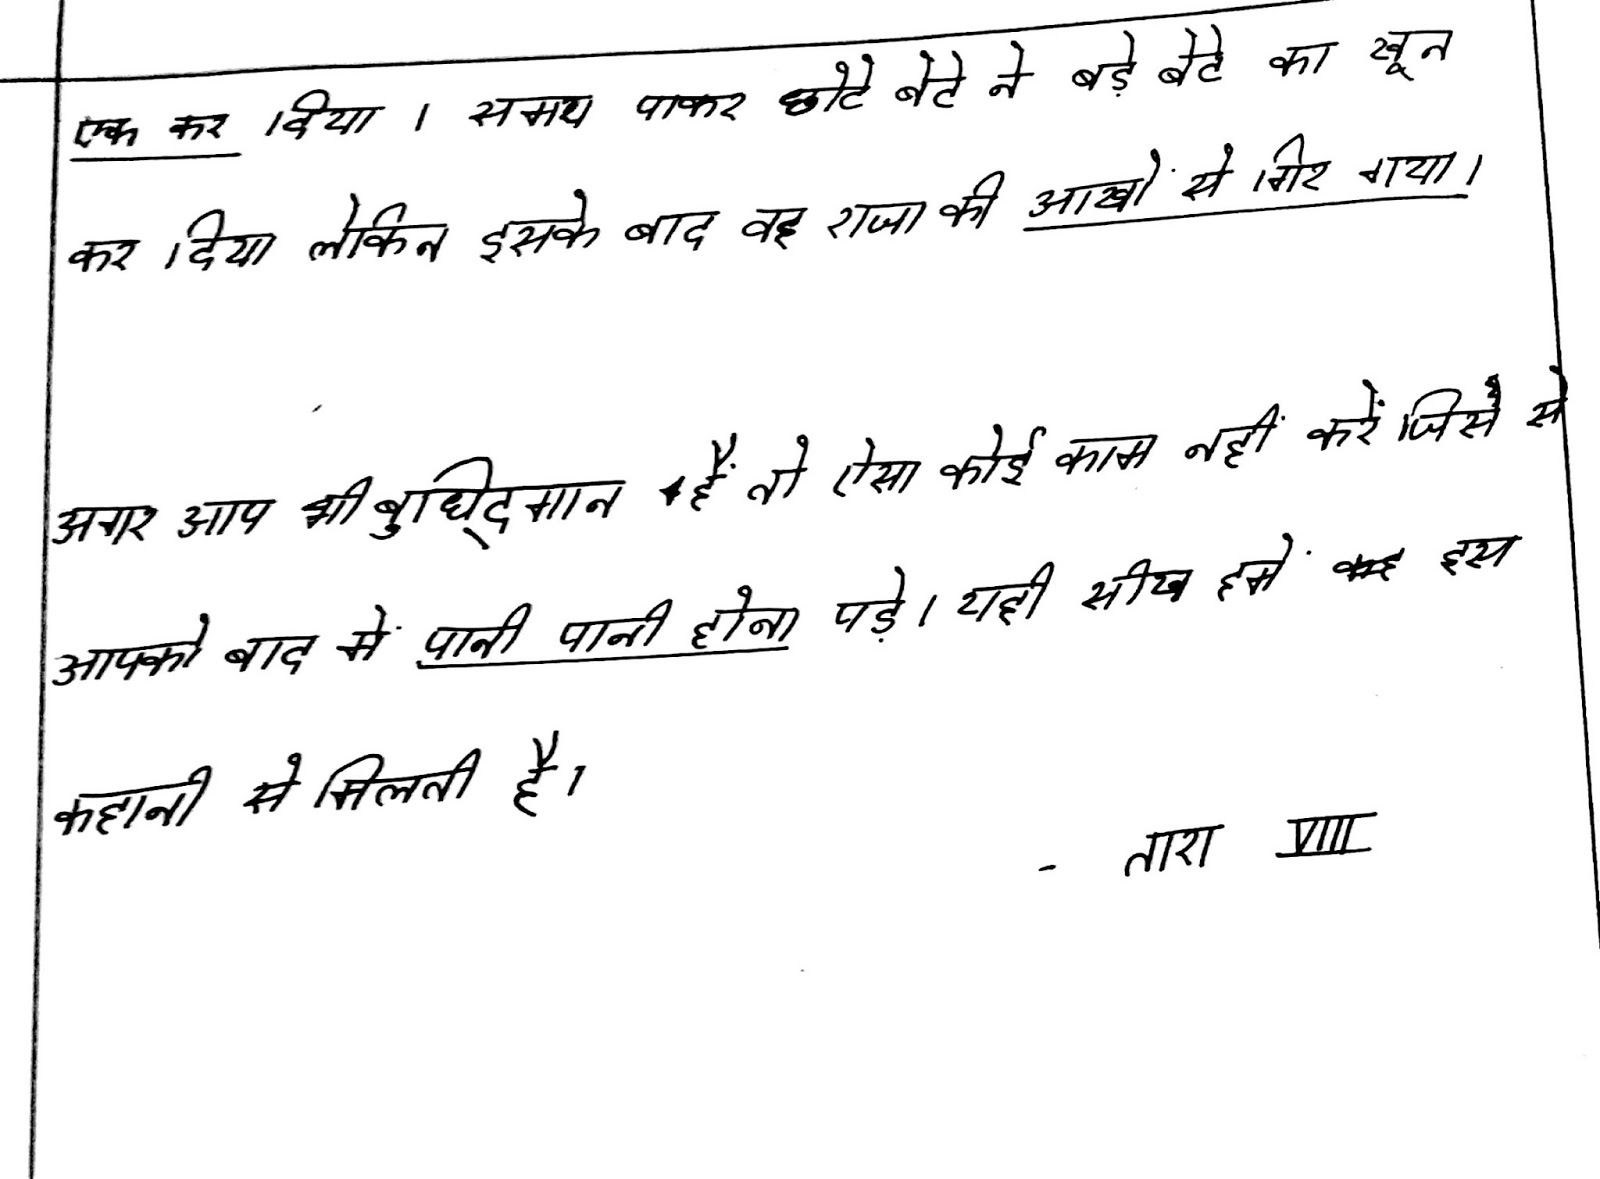 एक कर दिया । समय पाकर छोटे बेटे ने बड़े बेटे का खून
कर दिया लेकिन इसके बाद वह राजा की आखों से गिर गया।
अगर आप भी बुध्दिमान हैं तो ऐसा कोई काम नहीं करें जिसे से
आपको बाद में पानी पानी होना पड़े। यही सीख हमें इस
कहानी से मिलती है।
- तारा VIII